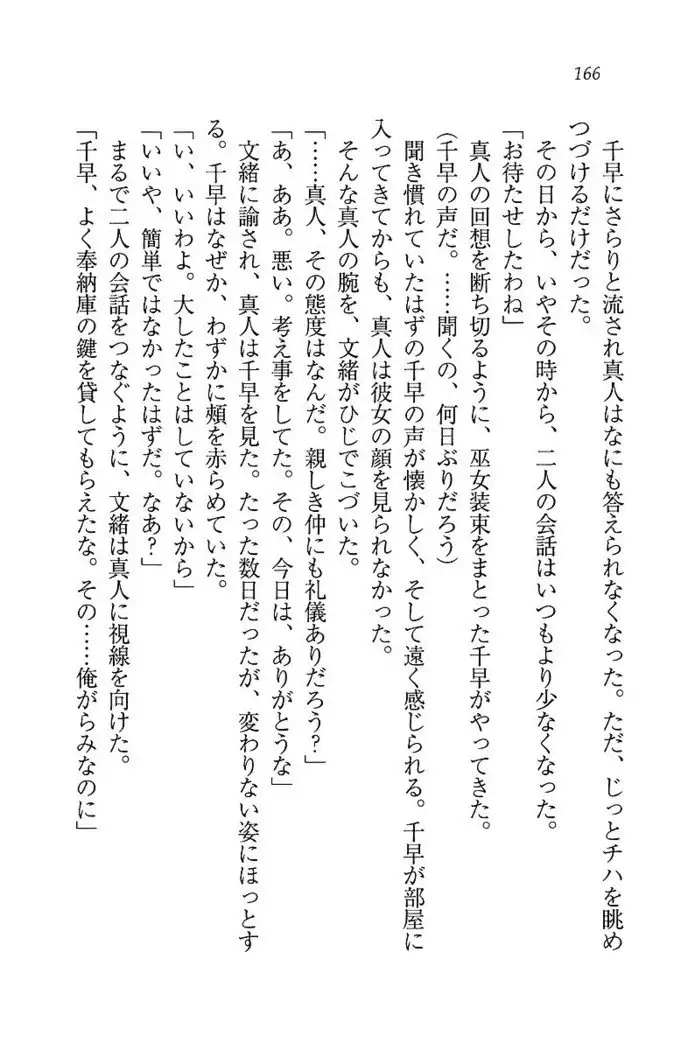 166
千早にさらりと流され真人はなにも答えられなくなった。ただ、じっとチハを眺め
つづけるだけだった。
その日から、いやその時から、二人の会話はいつもより少なくなった。
「お待たせしたわね」
真人の回想を断ち切るように、巫女装束をまとった千早がやってきた。
(千早の声だ。……聞くの、何日ぶりだろう)
聞き慣れていたはずの千早の声が懐かしく、そして遠く感じられる。千早が部屋に
入ってきてからも、真人は彼女の顔を見られなかった。
そんな真人の腕を、文緒がひじでこづいた。
「……真人、その態度はなんだ。親しき仲にも礼儀ありだろう?」
「あ、ああ。悪い。考え事をしてた。その、今日は、ありがとうな」
文緒に諭され、真人は千早を見た。たった数日だったが、変わりない姿にほっとす
る。千早はなぜか、わずかに頰を赤らめていた。
「い、いいわよ。大したことはしていないから」
「いいや、簡単ではなかったはずだ。なあ?」
まるで二人の会話をつなぐように、文緒は真人に視線を向けた。
「千早、よく奉納庫の鍵を貸してもらえたな。その……俺がらみなのに」